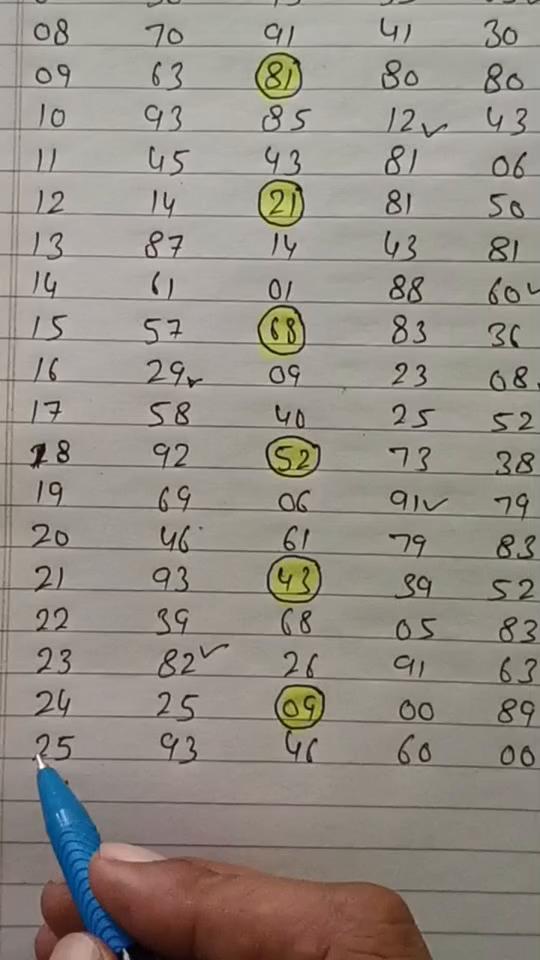 08 70 91 41 30
09 63 81 80 80
10 93 85 12 43
11 45 43 81 06
12 14 21 81 50
13 87 14 43 81
14 61 01 88 60
15 57 68 83 36
16 29 09 23 08
17 58 40 25 52
18 92 52 73 38
19 69 06 91 79
20 46 61 79 83
21 93 43 39 52
22 39 68 05 83
23 82 26 91 63
24 25 09 00 89
25 93 46 60 00